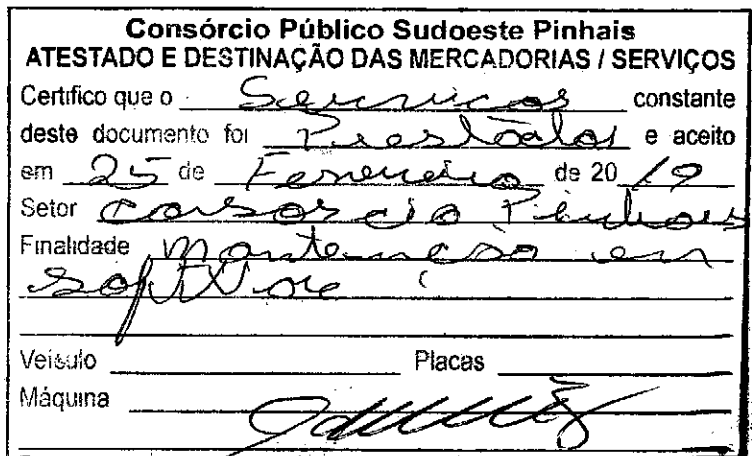 Consórcio Público Sudoeste Pinhais
ATESTADO E DESTINAÇÃO DAS MERCADORIAS / SERVIÇOS
Certifico que o Serviços constante
deste documento foi Prestados e aceito
em 25 de Fevereiro de 2019
Setor Consorcio Pinhais
Finalidade Manutençao em
Software
Veísulo Placas
Máquina